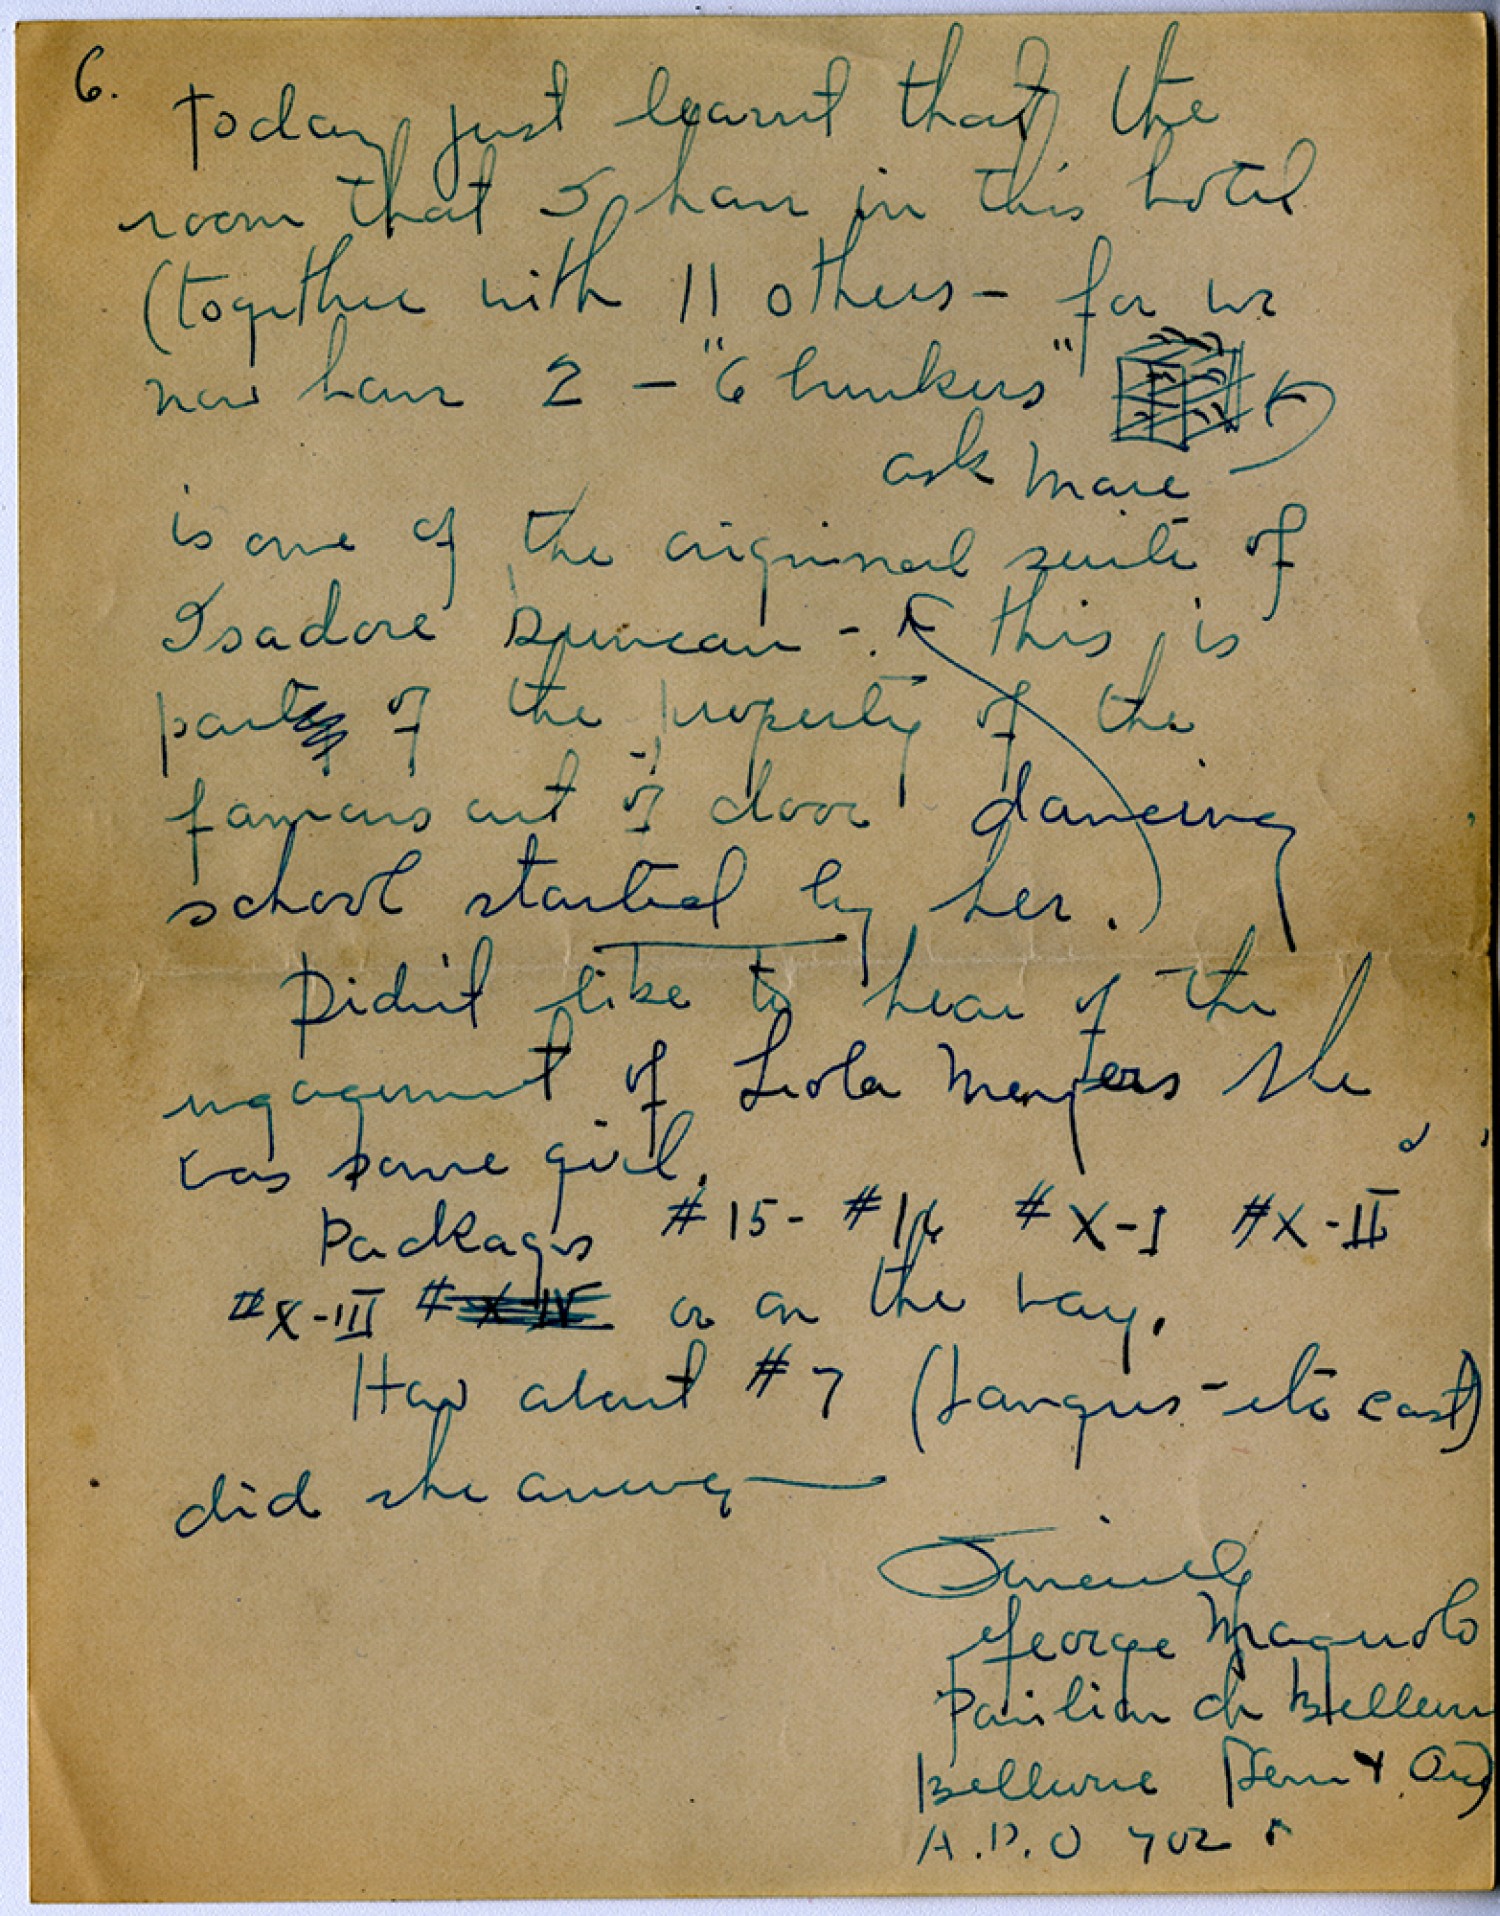 6.
Today just learnt that the
room that I have in this hotel
(together with 11 others - for we
now have 2 - "6 bunkers"
ask Marie
is one of the original suite of
Isadore Duncan -. this is
part of the property of the
famous out of door dancing
school started by her.)
Didn't like to hear of the
engagement of Leola Meyers she
was some girl.
Packages #15- #16 #X-I #X-II
#X-III # X-IV or on the way.
How about #7 (
did she
Sincerely
George Magnolo
Pavilion de Bellevue
Bellevue (Seine & Oise)
A.P.O 702